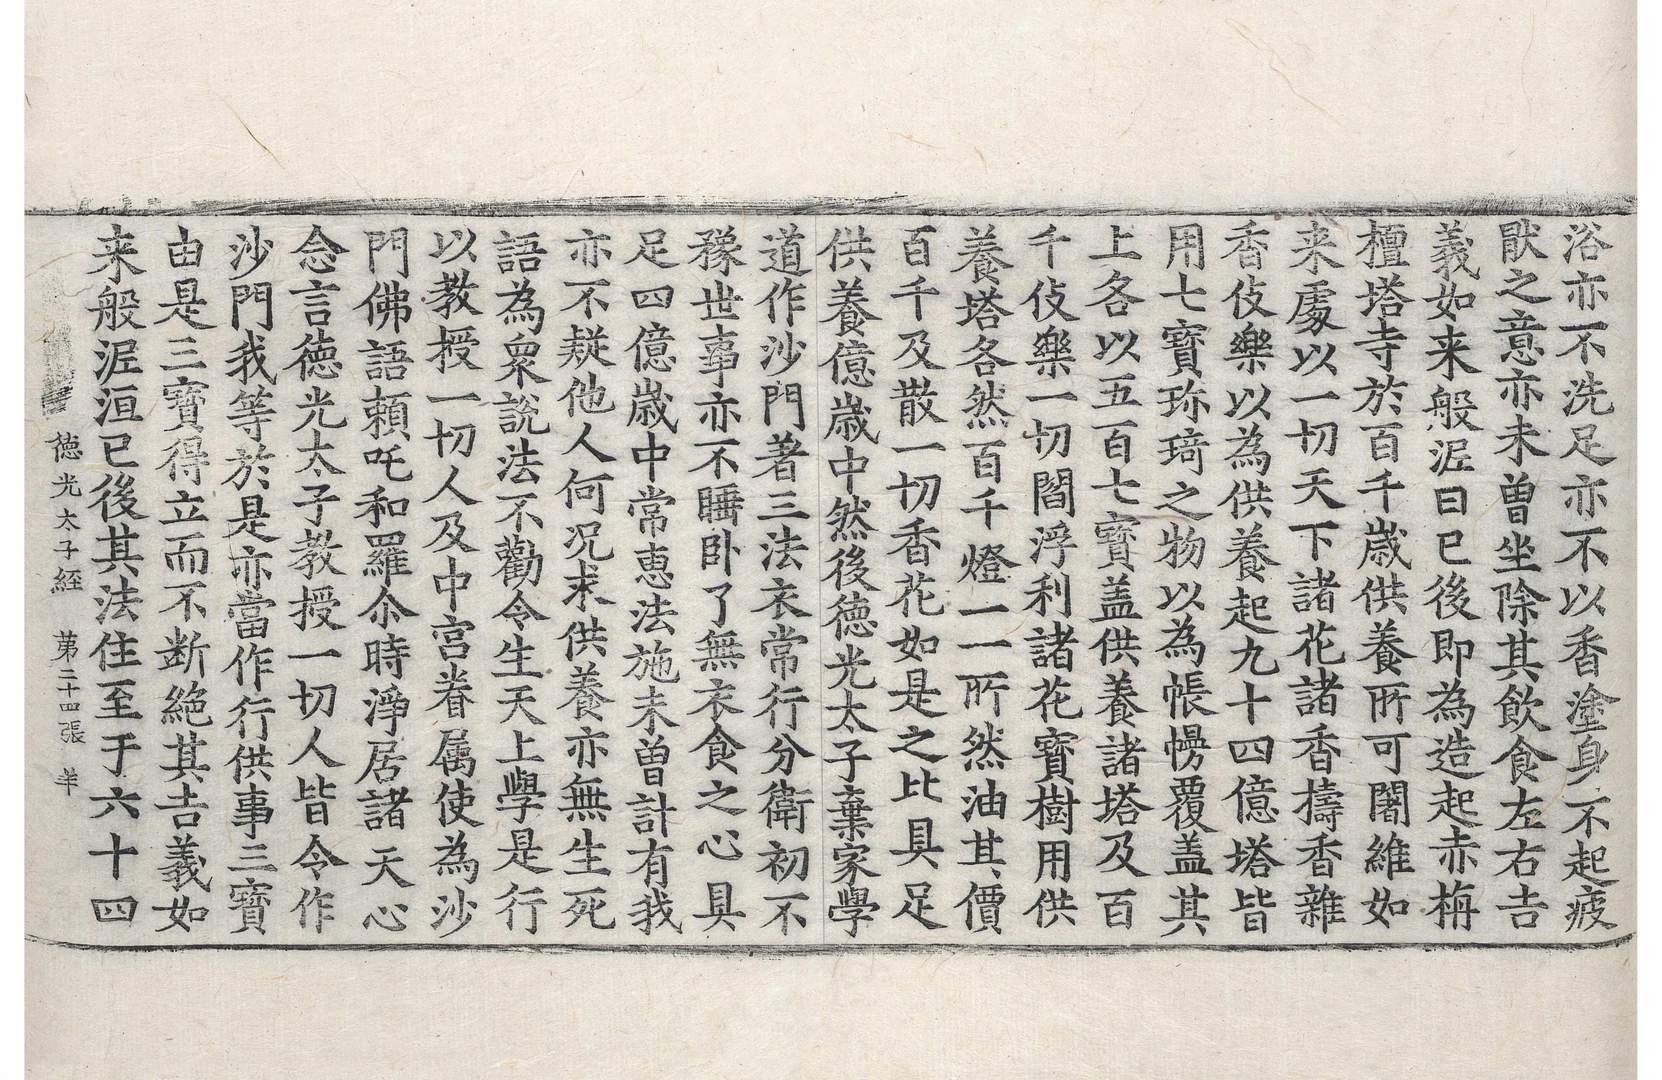 浴亦不洗足亦不以香塗身不起疲
猒之意亦未曽坐除其飲食左右吉
義如来般泥曰已後即為造起赤栴
檀塔寺於百千歲供養所可闍維如
来處以一切天下諸花諸香擣香雜
香伎樂以為供養起九十四億塔皆
用七寶珎琦之物以為帳幔覆盖其
上各以五百七寶盖供養諸塔及百
千伎樂一切閻浮利諸花寶樹用供
養塔各然百千燈一一所然油其價
百千及散一切香花如是之比具足
供養億歲中然後徳光太子棄家學
道作沙門著三法衣常行分衛初不
豫世事亦不睡卧了無衣食之心具
足四億歲中常惠法施未曽計有我
亦不疑他人何況求供養亦無生死
語為衆說法不勸令生天上學是行
以教授一切人及中宮眷属使為沙
門佛語頼吒和羅尒時淨居諸天心
念言徳光太子教授一切人皆令作
沙門我等於是亦當作行供事三寶
由是三寶得立而不断絶其吉義如
来般泥洹已後其法住至于六十四
徳光太子経　苐二十四張　羊